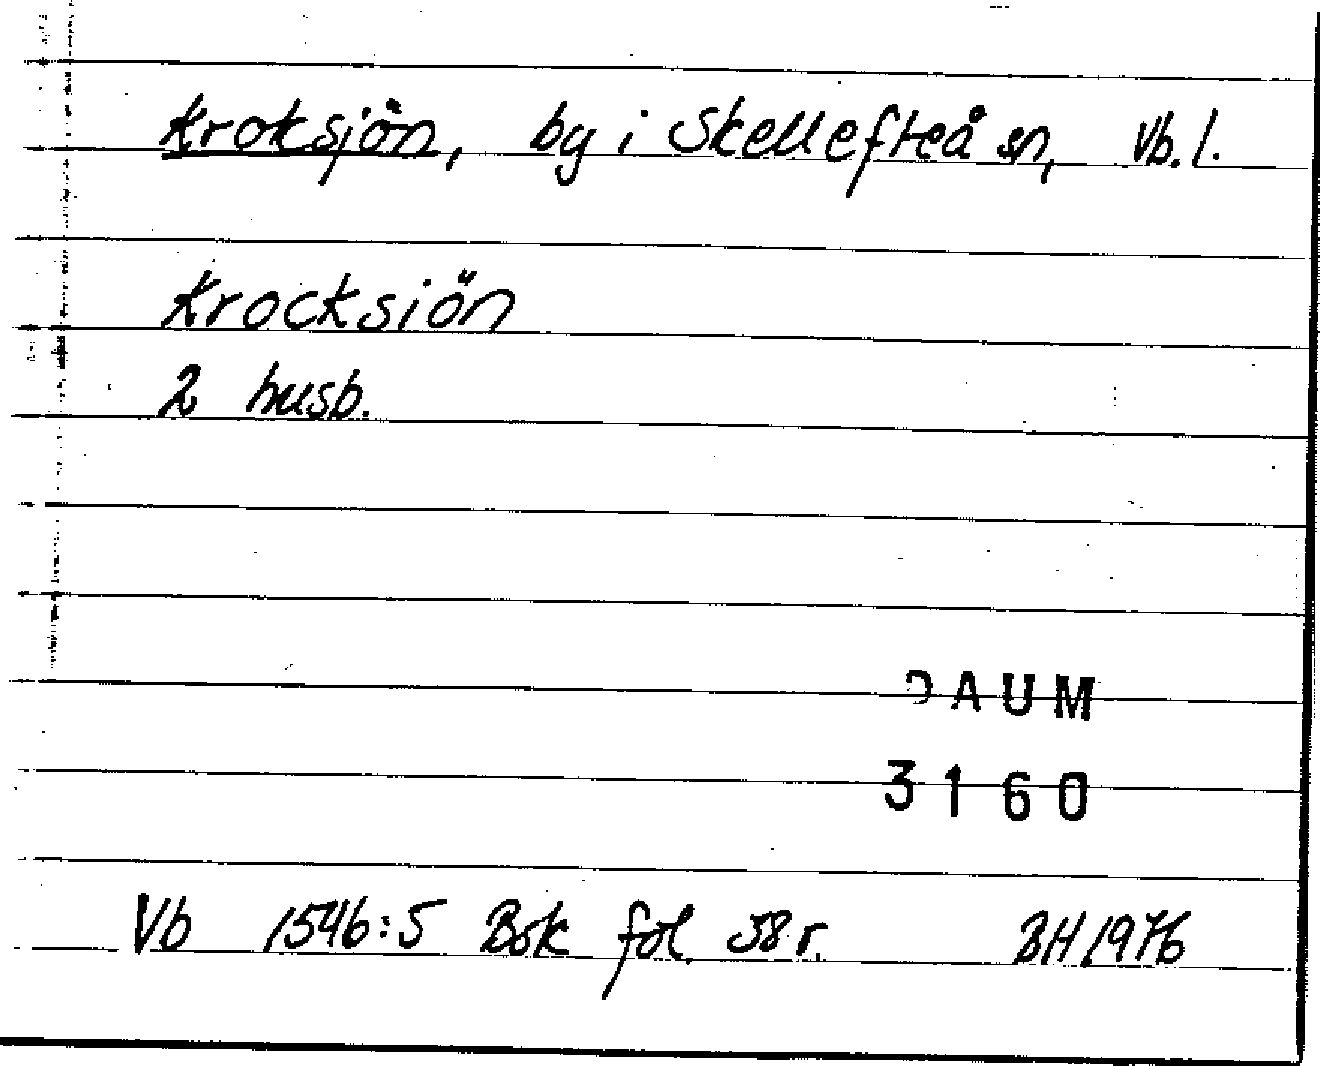 Kroksjön, by i Skellefteå sn, Vb. l.
Krocksiön
2 husb.
DAUM
3160
Vb 1546:5 Bok fol 38 r. BH 1976